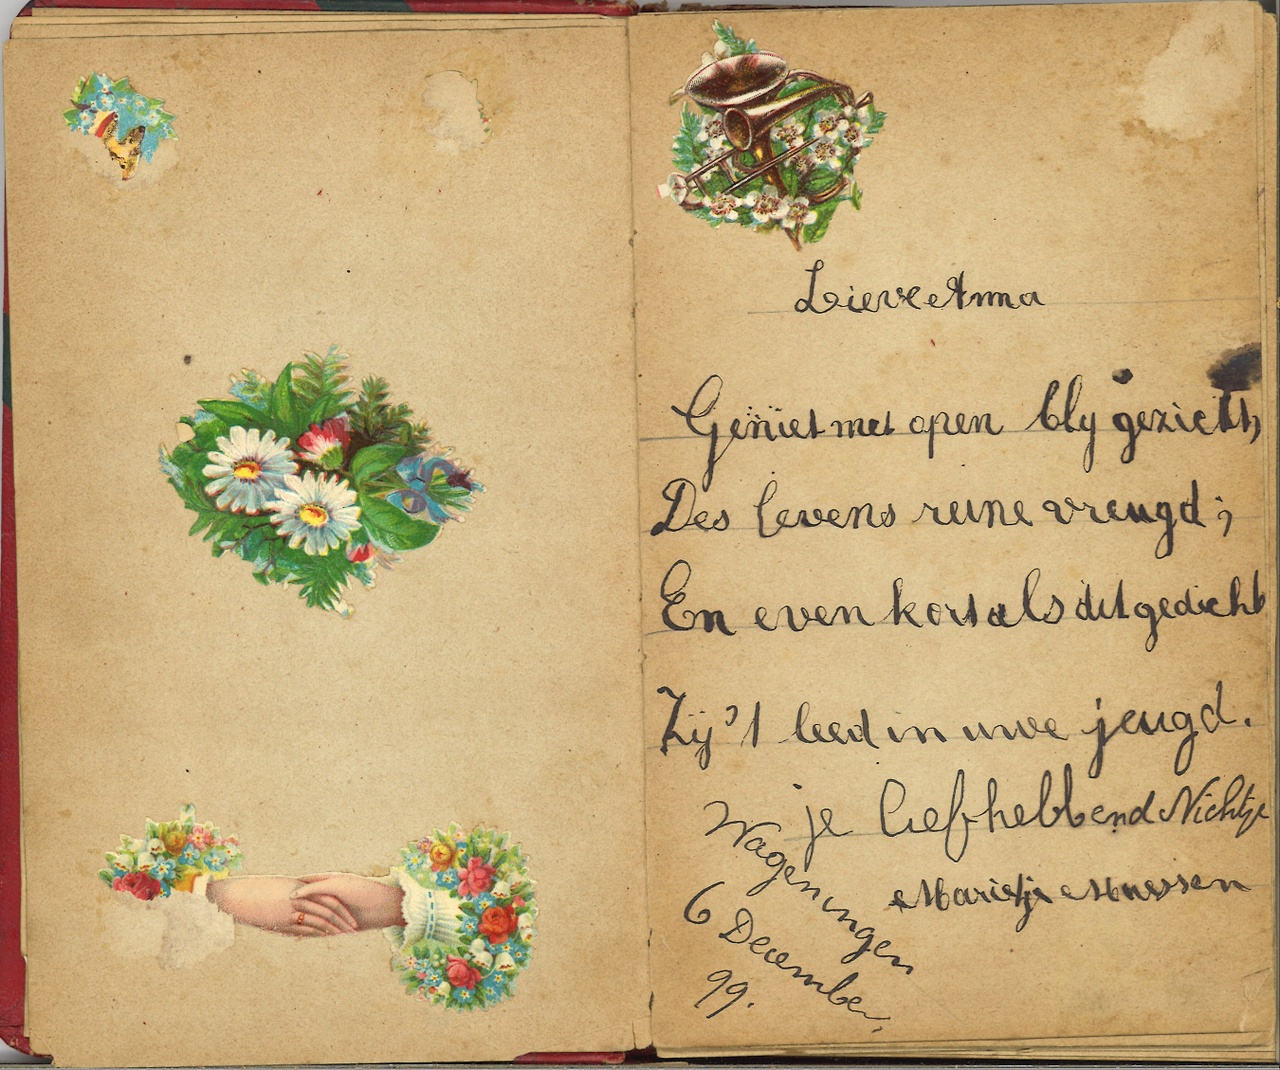 Lieve Anna
Geniet met open bly gezicht,
Des levens reine vreugd;
En even kort als dit gedicht
Zij 't leed in uwe jeugd.
je liefhebbend Nichtje
Marietje Mussen
Wageningen
6 December
99.